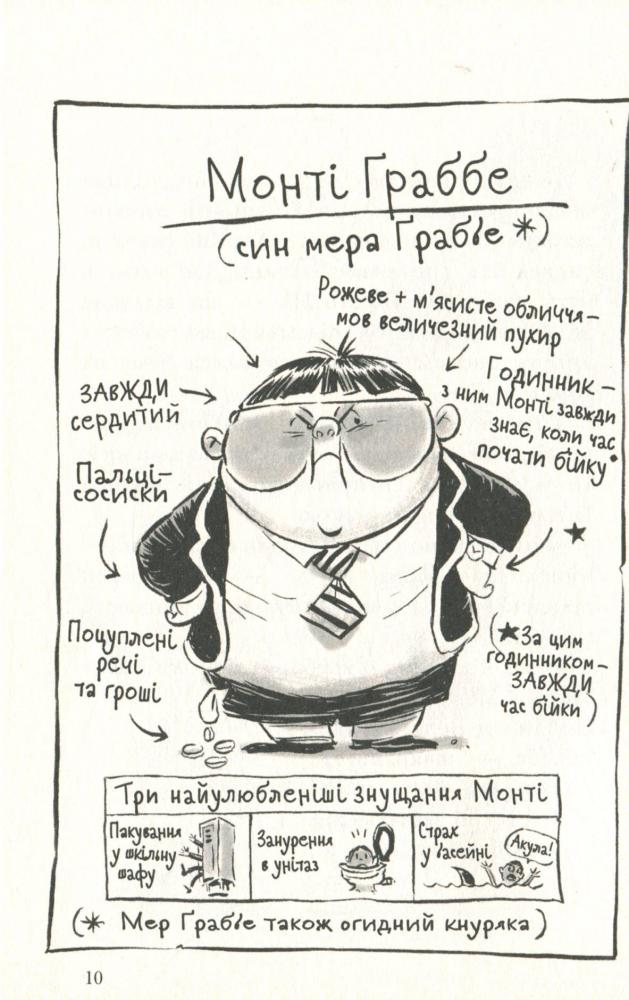 Монті Ґраббе
(син мера Ґраббе *)
Рожеве + м'ясисте обличчя –
мов величезний пухир
ЗАВЖДИ
сердитий
Годинник –
з ним Монті завжди
знає, коли час
почати бійку*
Пальці-
сосиски
Поцуплені
речі
та гроші
(★За цим
годинником –
ЗАВЖДИ
час бійки)
Три найулюбленіші знущання Монті
Пакування
у шкільну
шафу
Занурення
в унітаз
Страх
у басейні
Акула!
(* Мер Ґраббе також огидний кнуряка)
10